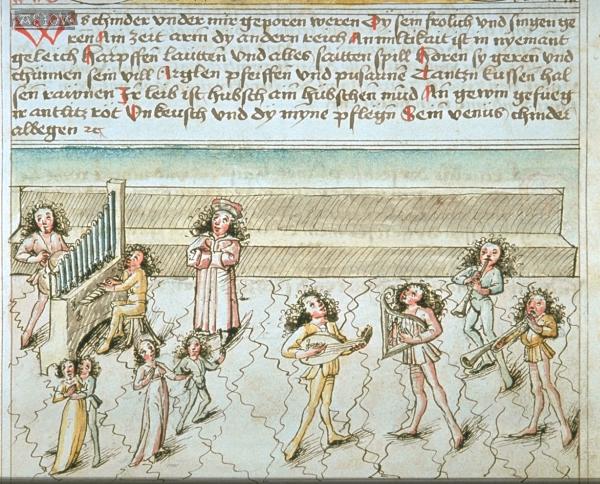 Was chinder vnder mir geporen weren Dy sein frolich vnd singen ge
ren Ain zeit arm dy andern reich An miltikait ist in nyemant
geleich Harpffen lautten vnd alles saitten spill Horen sy geren vnd
chunnen sein vill Arglen pfeiffen vnd pusaune Tantzn kussen hal
sen rawnen Ir leib ist hubsch ain hubschen mund Ain gefueg
ir antlitz rot Vnkeusch vnd dy myne pflegn Sein venus chinder
albegen